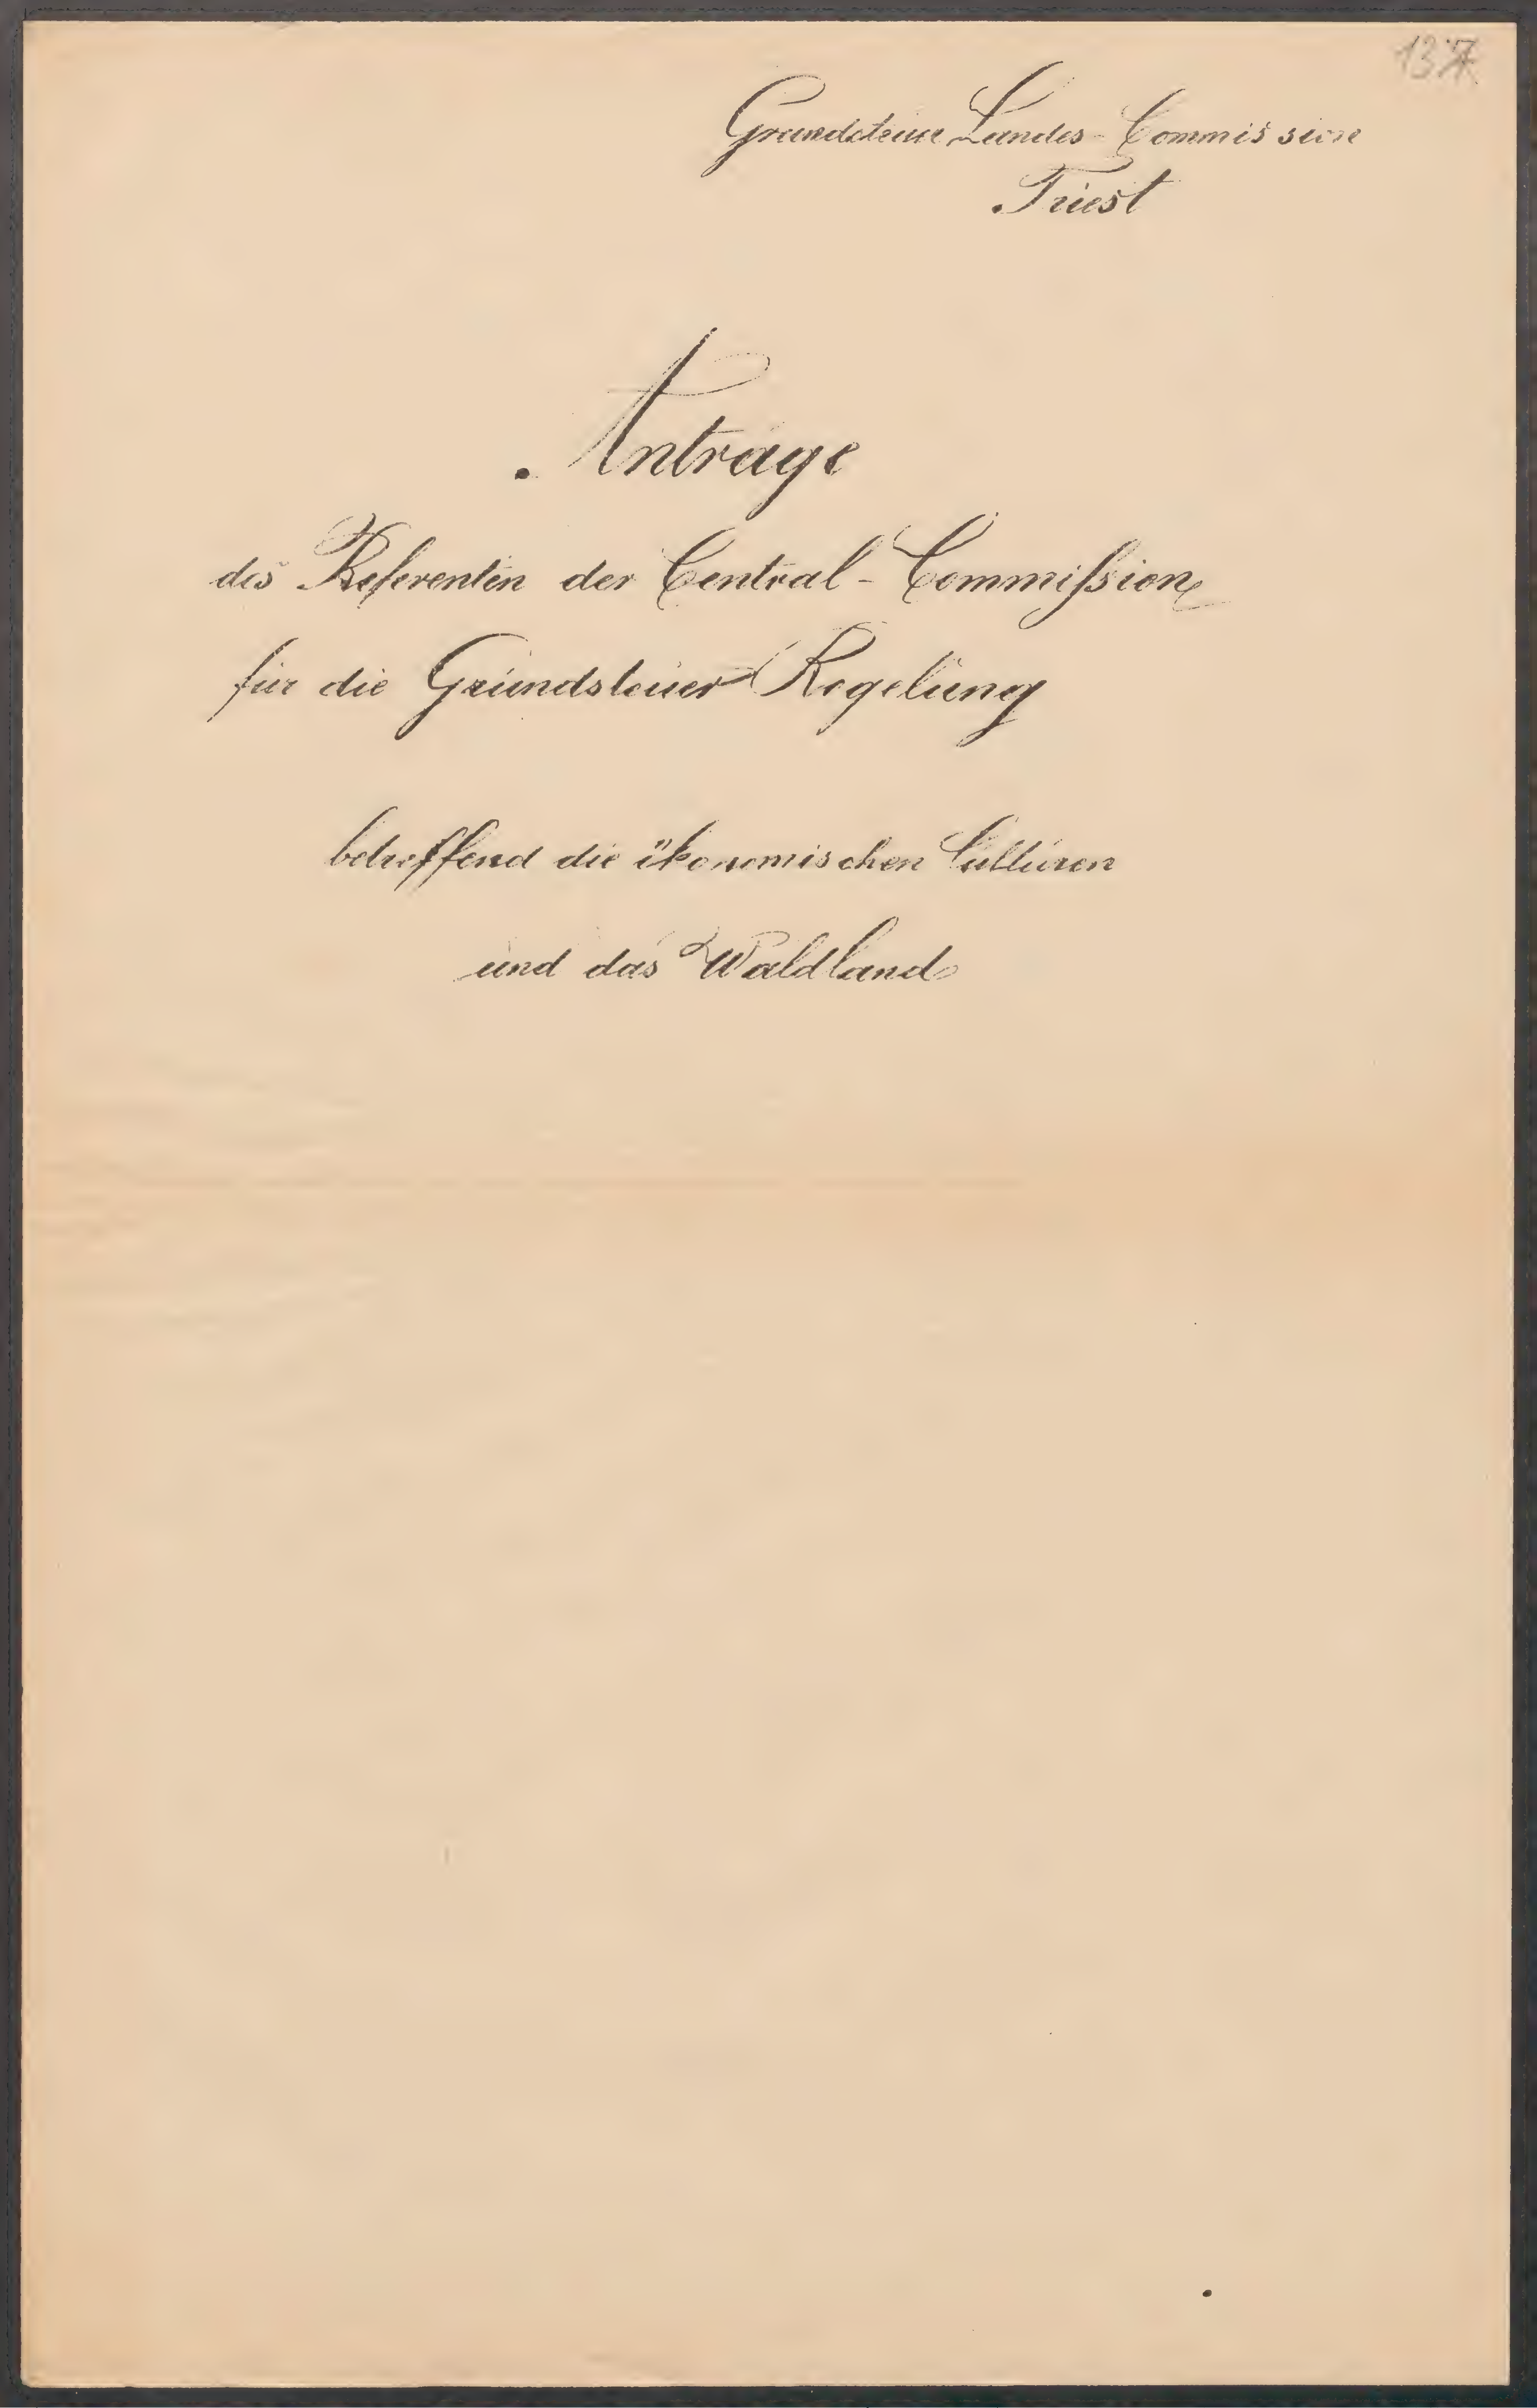 137
Grundsteuer Landes-Commission
Triest
Anträge
des Referenten der Central-Commißion
für die Grundsteuer Regelung
betreffend die ökonomischen Culturen
und das Waldland